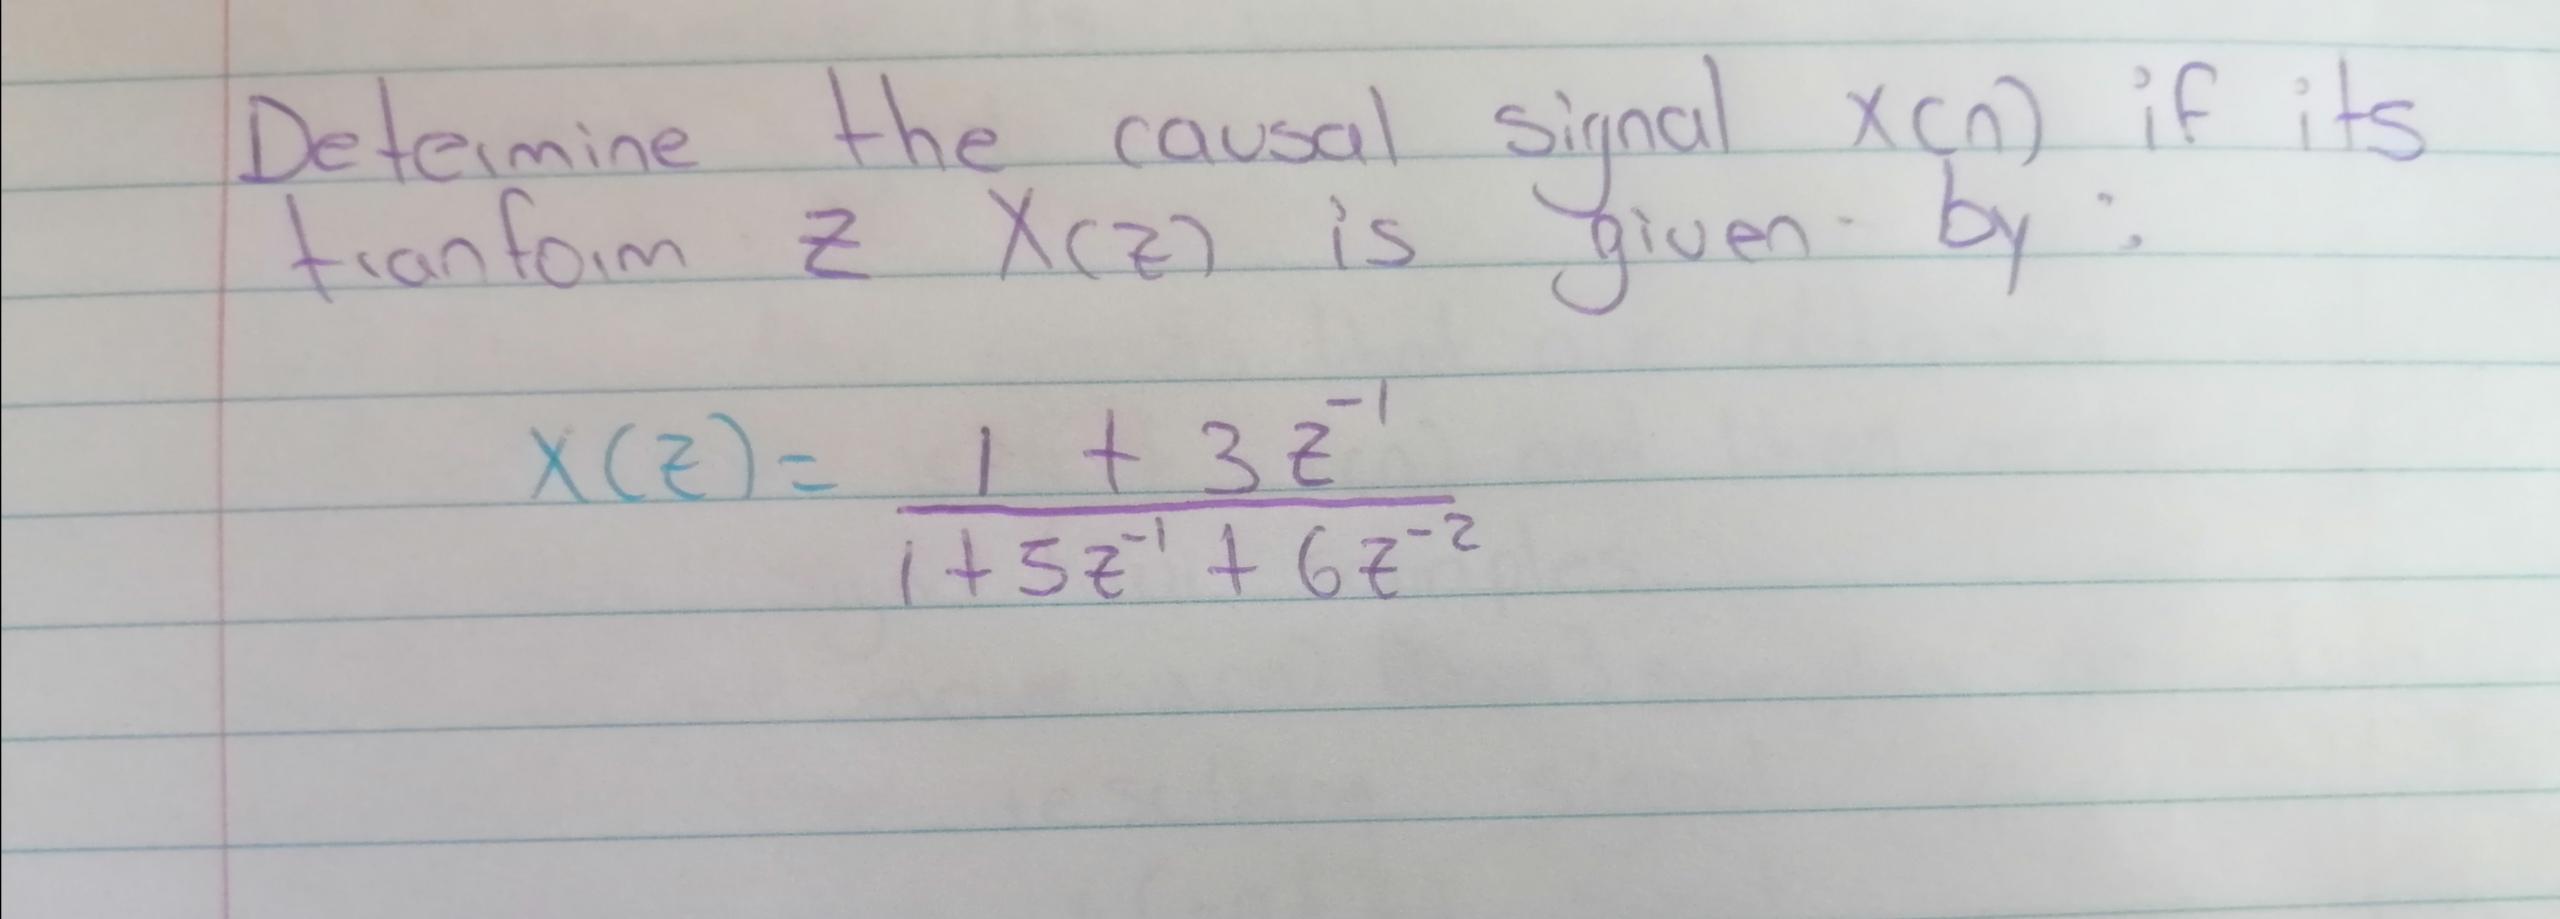 Determine the causal signal x(n) if its
tranform z X(z) is given by:
X(z) = 1 + 3z⁻¹
1 + 5z⁻¹ + 6z⁻²